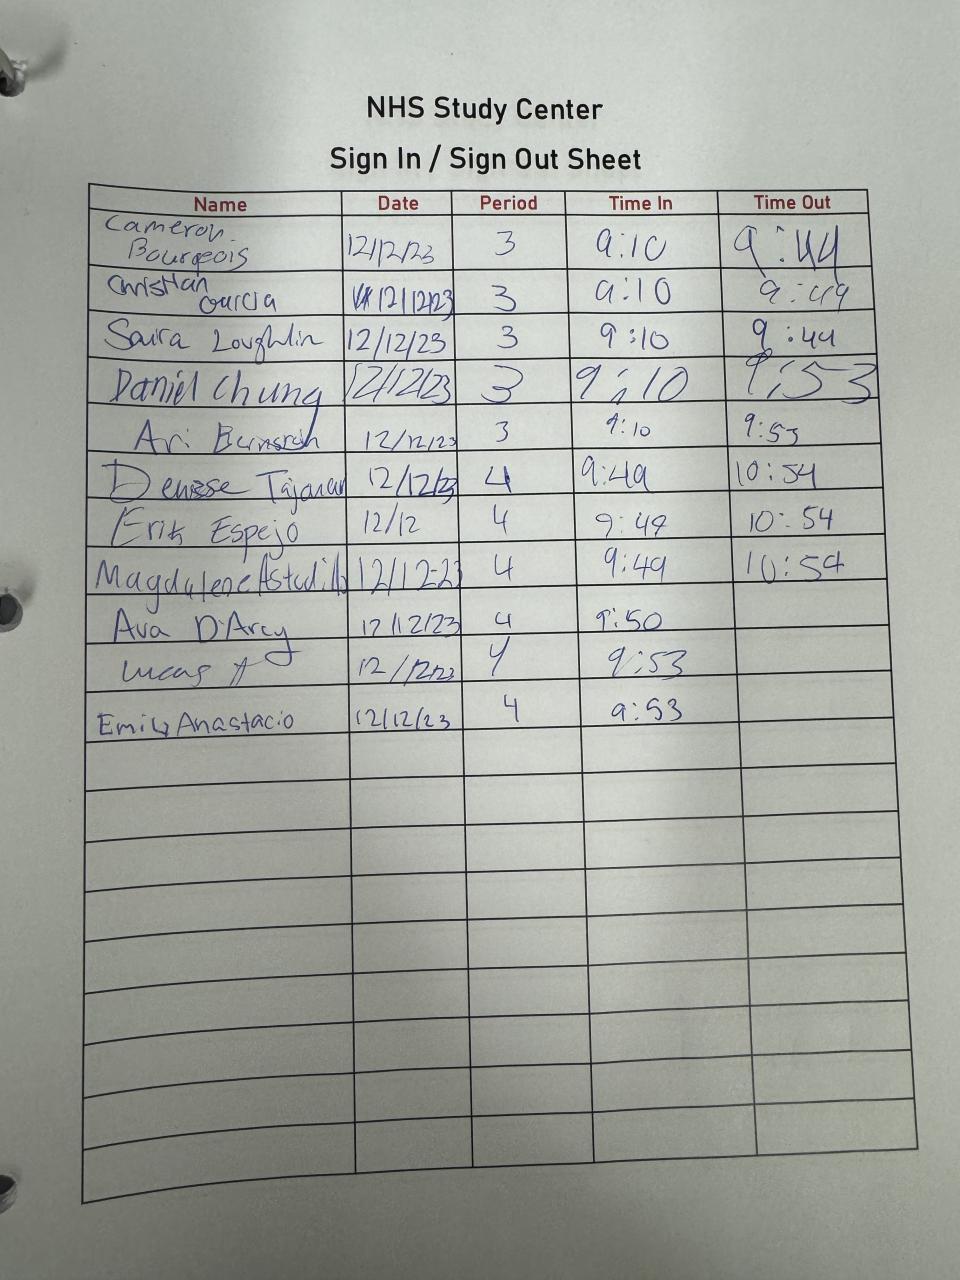 NHS Study Center
Sign In / Sign Out Sheet
Name Date Period Time In Time Out
Cameron
Bourgeois 12/12/23 3 9:10 9:44
Christian
Garcia 12/12/23 3 9:10 9:49
Saira Loughlin 12/12/23 3 9:10 9:44
Daniel Chung 12/12/23 3 9:10 9:53
Ari 12/12/23 3 9:10 9:53
Denisse 12/12/23 4 9:49 10:54
Erik Espejo 12/12 4 9:49 10:54
Magdalene Astudillo 12/12-23 4 9:49 10:54
Ava D'Arcy 12/12/23 4 9:50
Lucas A 12/12/23 4 9:53
Emily Anastacio 12/12/23 4 9:53